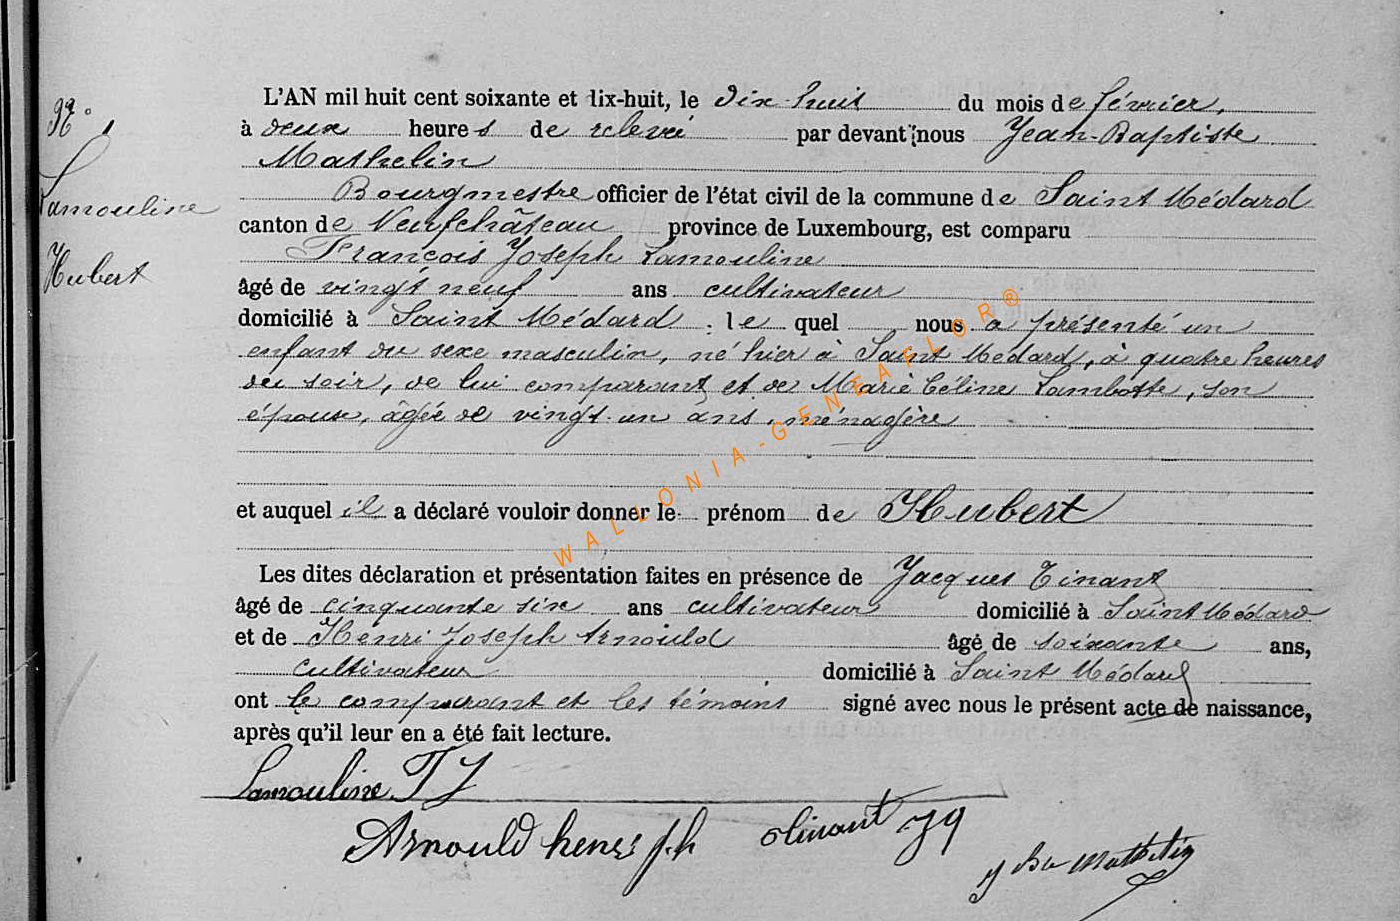 L'AN mil huit cent soixante et dix-huit, le dix huit du mois de février,
à deux heures de relevée par devant nous Jean-Baptiste
Mathelin
Bourgmestre officier de l'état civil de la commune de Saint Médard
canton de Neufchâteau province de Luxembourg, est comparu
François Joseph Lamouline
âgé de vingt neuf ans cultivateur
domicilié à Saint Médard : lequel nous a présenté un
enfant du sexe masculin, né hier à Saint Médard, à quatre heures
du soir, de lui comparant et de Marie Céline Lambotte, son
épouse, âgée de vingt-un ans, ménagère
et auquel il a déclaré vouloir donner le prénom de Hubert
Les dites déclaration et présentation faites en présence de Jacques Tinant
âgé de cinquante six ans cultivateur domicilié à Saint Médard
et de Henri Joseph Arnould âgé de soixante ans,
cultivateur domicilié à Saint Médard
ont le comparant et les témoins signé avec nous le présent acte de naissance,
après qu'il leur en a été fait lecture.
Lamouline
Hubert
Lamouline F J
Arnould henri jph
tinant Jq
J Bte Mathelin
WALLONIA-GENEAFLOR®